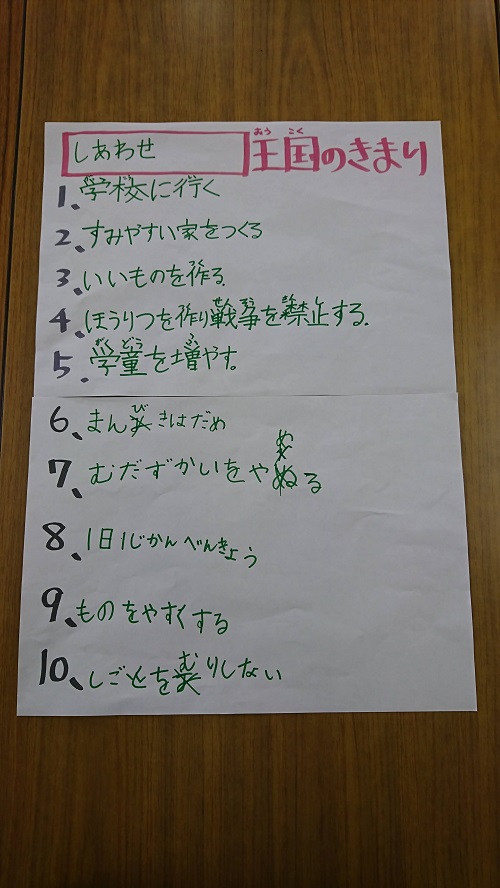 しあわせ 王国のきまり
1、学校に行く
2、すみやすい家をつくる
3、いいものを作る.
4、ほうりつを作り戦争を禁止する.
5、学童を増やす。
6、まんびきはだめ
7、むだずかいをやめる
8、1日1じかんべんきょう
9、ものをやすくする
10、しごとをむりしない